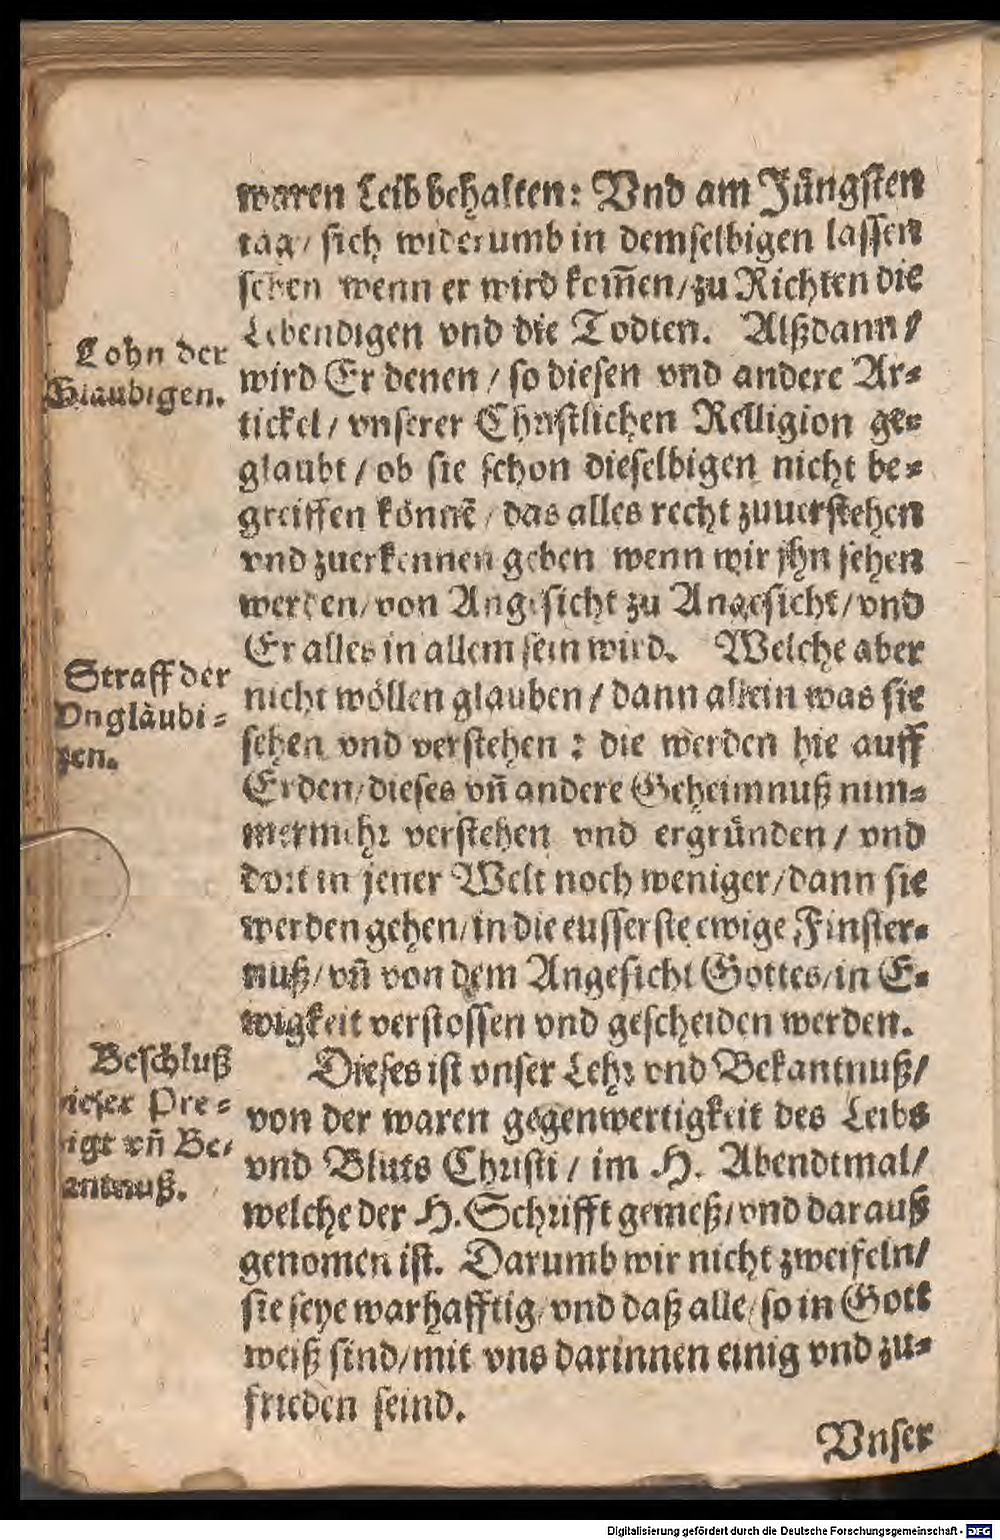 waren Leib behalten: Vnd am Jüngsten
tag/ sich widerumb in demselbigen lassen
sehen wenn er wird kom̃en/zu Richten die
Lebendigen vnd die Todten. Alßdann/
Lohn der
Glaubigen.
wird Er denen/ so diesen vnd andere Ar⸗
tickel/ vnserer Christlichen Relligion ge⸗
glaubt/ ob sie schon dieselbigen nicht be⸗
greiffen könnẽ/ das alles recht zuuerstehen
vnd zuerkennen geben wenn wir jhn sehen
werden/ von Angesicht zu Angesicht/ vnd
Er alles in allem sein wird. Welche aber
Straff der
Vnglàubi⸗
gen.
nicht wöllen glauben/ dann allein was sie
sehen vnd verstehen: die werden hie auff
Erden/ dieses vñ andere Geheimnuß nim⸗
mermehr verstehen vnd ergründen/ vnd
dort in jener Welt noch weniger/dann sie
werden gehen/ in die eusserste ewige Finster⸗
nuß/ vñ von dem Angesicht Gottes/in E⸗
wigkeit verstossen vnd gescheiden werden.
Beschluß
dieser Pre⸗
digt vñ Be⸗
kantnuß.
Dieses ist vnser Lehr vnd Bekantnuß/
von der waren gegenwertigkeit des Leibs
vnd Bluts Christi/ im H. Abendtmal/
welche der H. Schrifft gemeß/ vnd darauß
genomen ist. Darumb wir nicht zweifeln/
sie seye warhafftig/ vnd daß alle/ so in Gott
weiß sind/mit vns darinnen einig vnd zu⸗
frieden seind.
Vnser
Digitalisierung gefördert durch die Deutsche Forschungsgemeinschaft - DFG